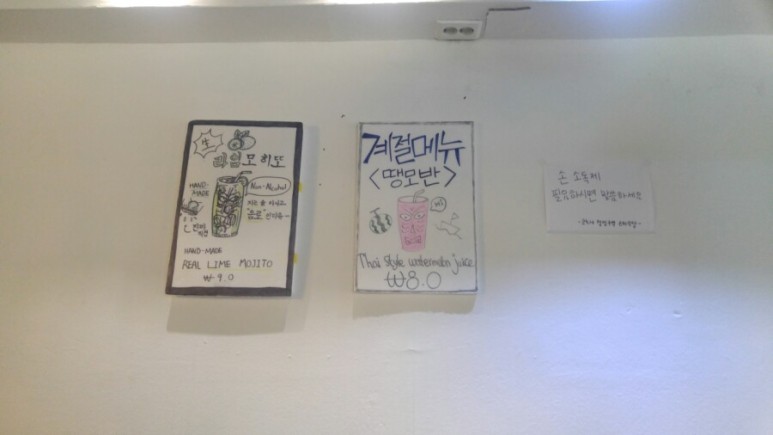 生
라임모히또
HAND-MADE
Non-Alcohol
HAND-MADE
REAL LIME MOJITO
₩9.0
계절메뉴
<땡모반>
Hi
Thai Style watermelon juice
₩8.0
손 소독제
필요하시면 말씀하세요